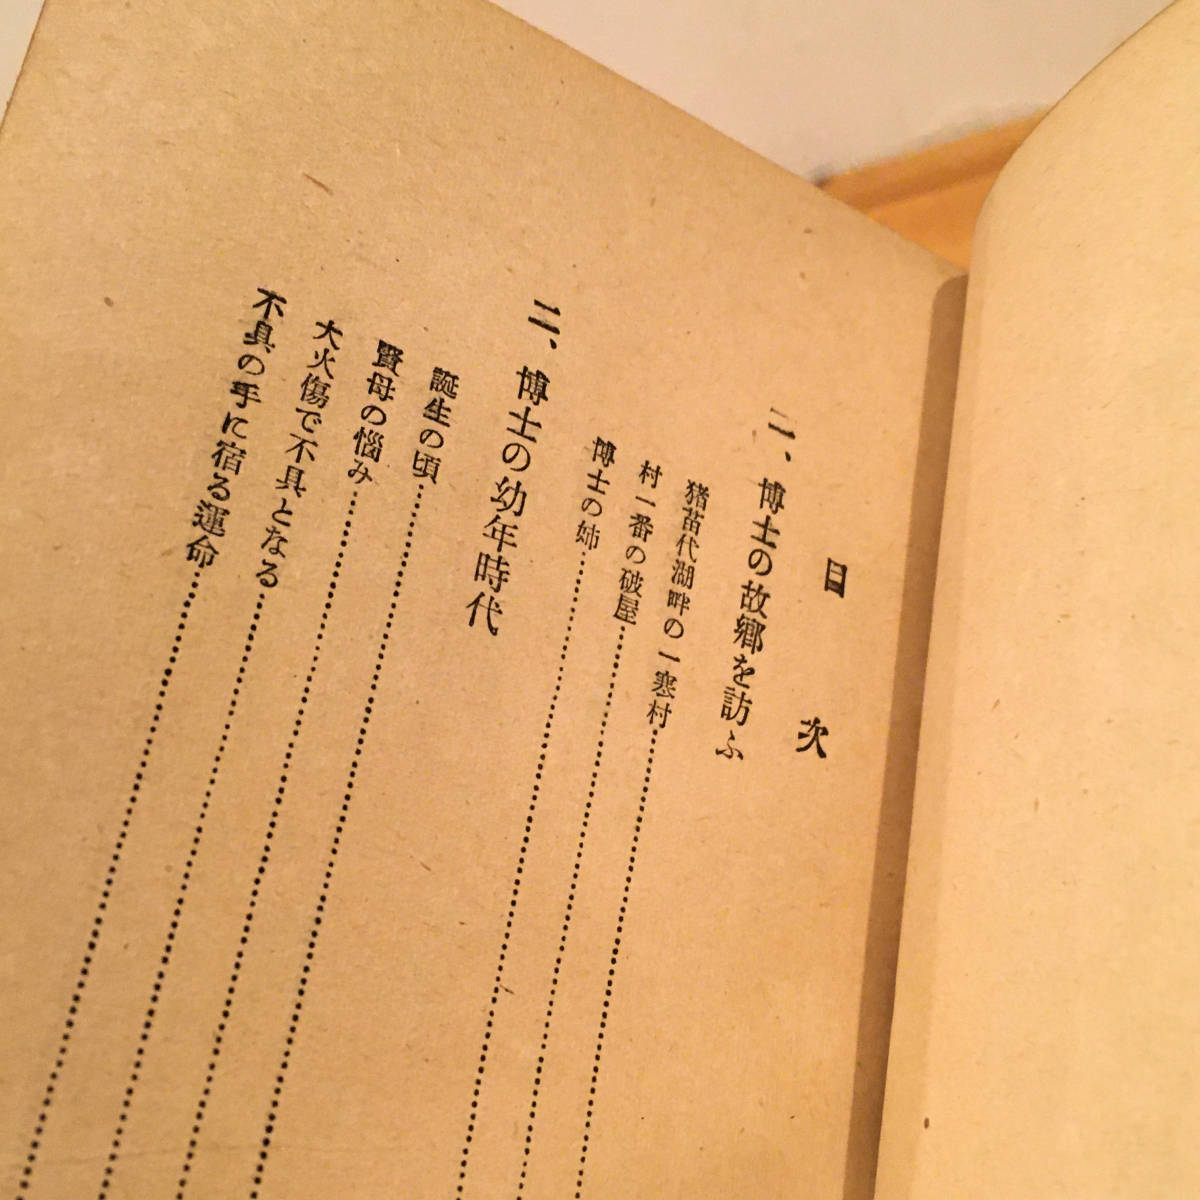 目次
一、博士の故鄉を訪ふ
猪苗代湖畔の一寒村
村一番の破屋
博士の姉
二、博士の幼年時代
誕生の頃
賢母の惱み
大火傷で不具となる
不具の手に宿る運命